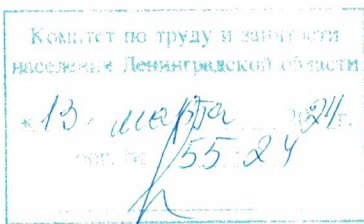 Комитет по труду и занятости
населения Ленинградской области
« 13 » марта 2024 г.
55-24